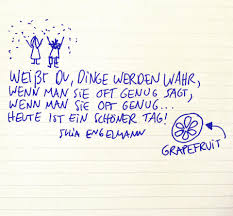 WEIßT DU, DINGE WERDEN WAHR,
WENN MAN SIE OFT GENUG SAGT,
WENN MAN SIE OFT GENUG...
HEUTE IST EIN SCHÖNER TAG!
JULIA ENGELMANN
GRAPEFRUIT